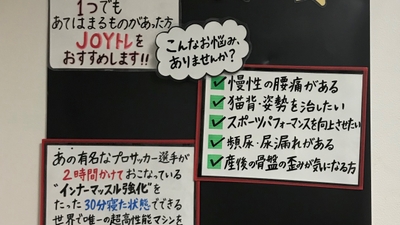 1つでも
あてはまるものがあった方
JOYトレを
おすすめします!!
こんなお悩み、
ありませんか?
慢性の腰痛がある
猫背・姿勢を治したい
スポーツパフォーマンスを向上させたい
頻尿・尿漏れがある
産後の骨盤の歪みが気になる方
あの有名なプロサッカー選手が
2時間かけておこなっている
"インナーマッスル強化"を
たった30分寝た状態でできる
世界で唯一の超高性能マシンを